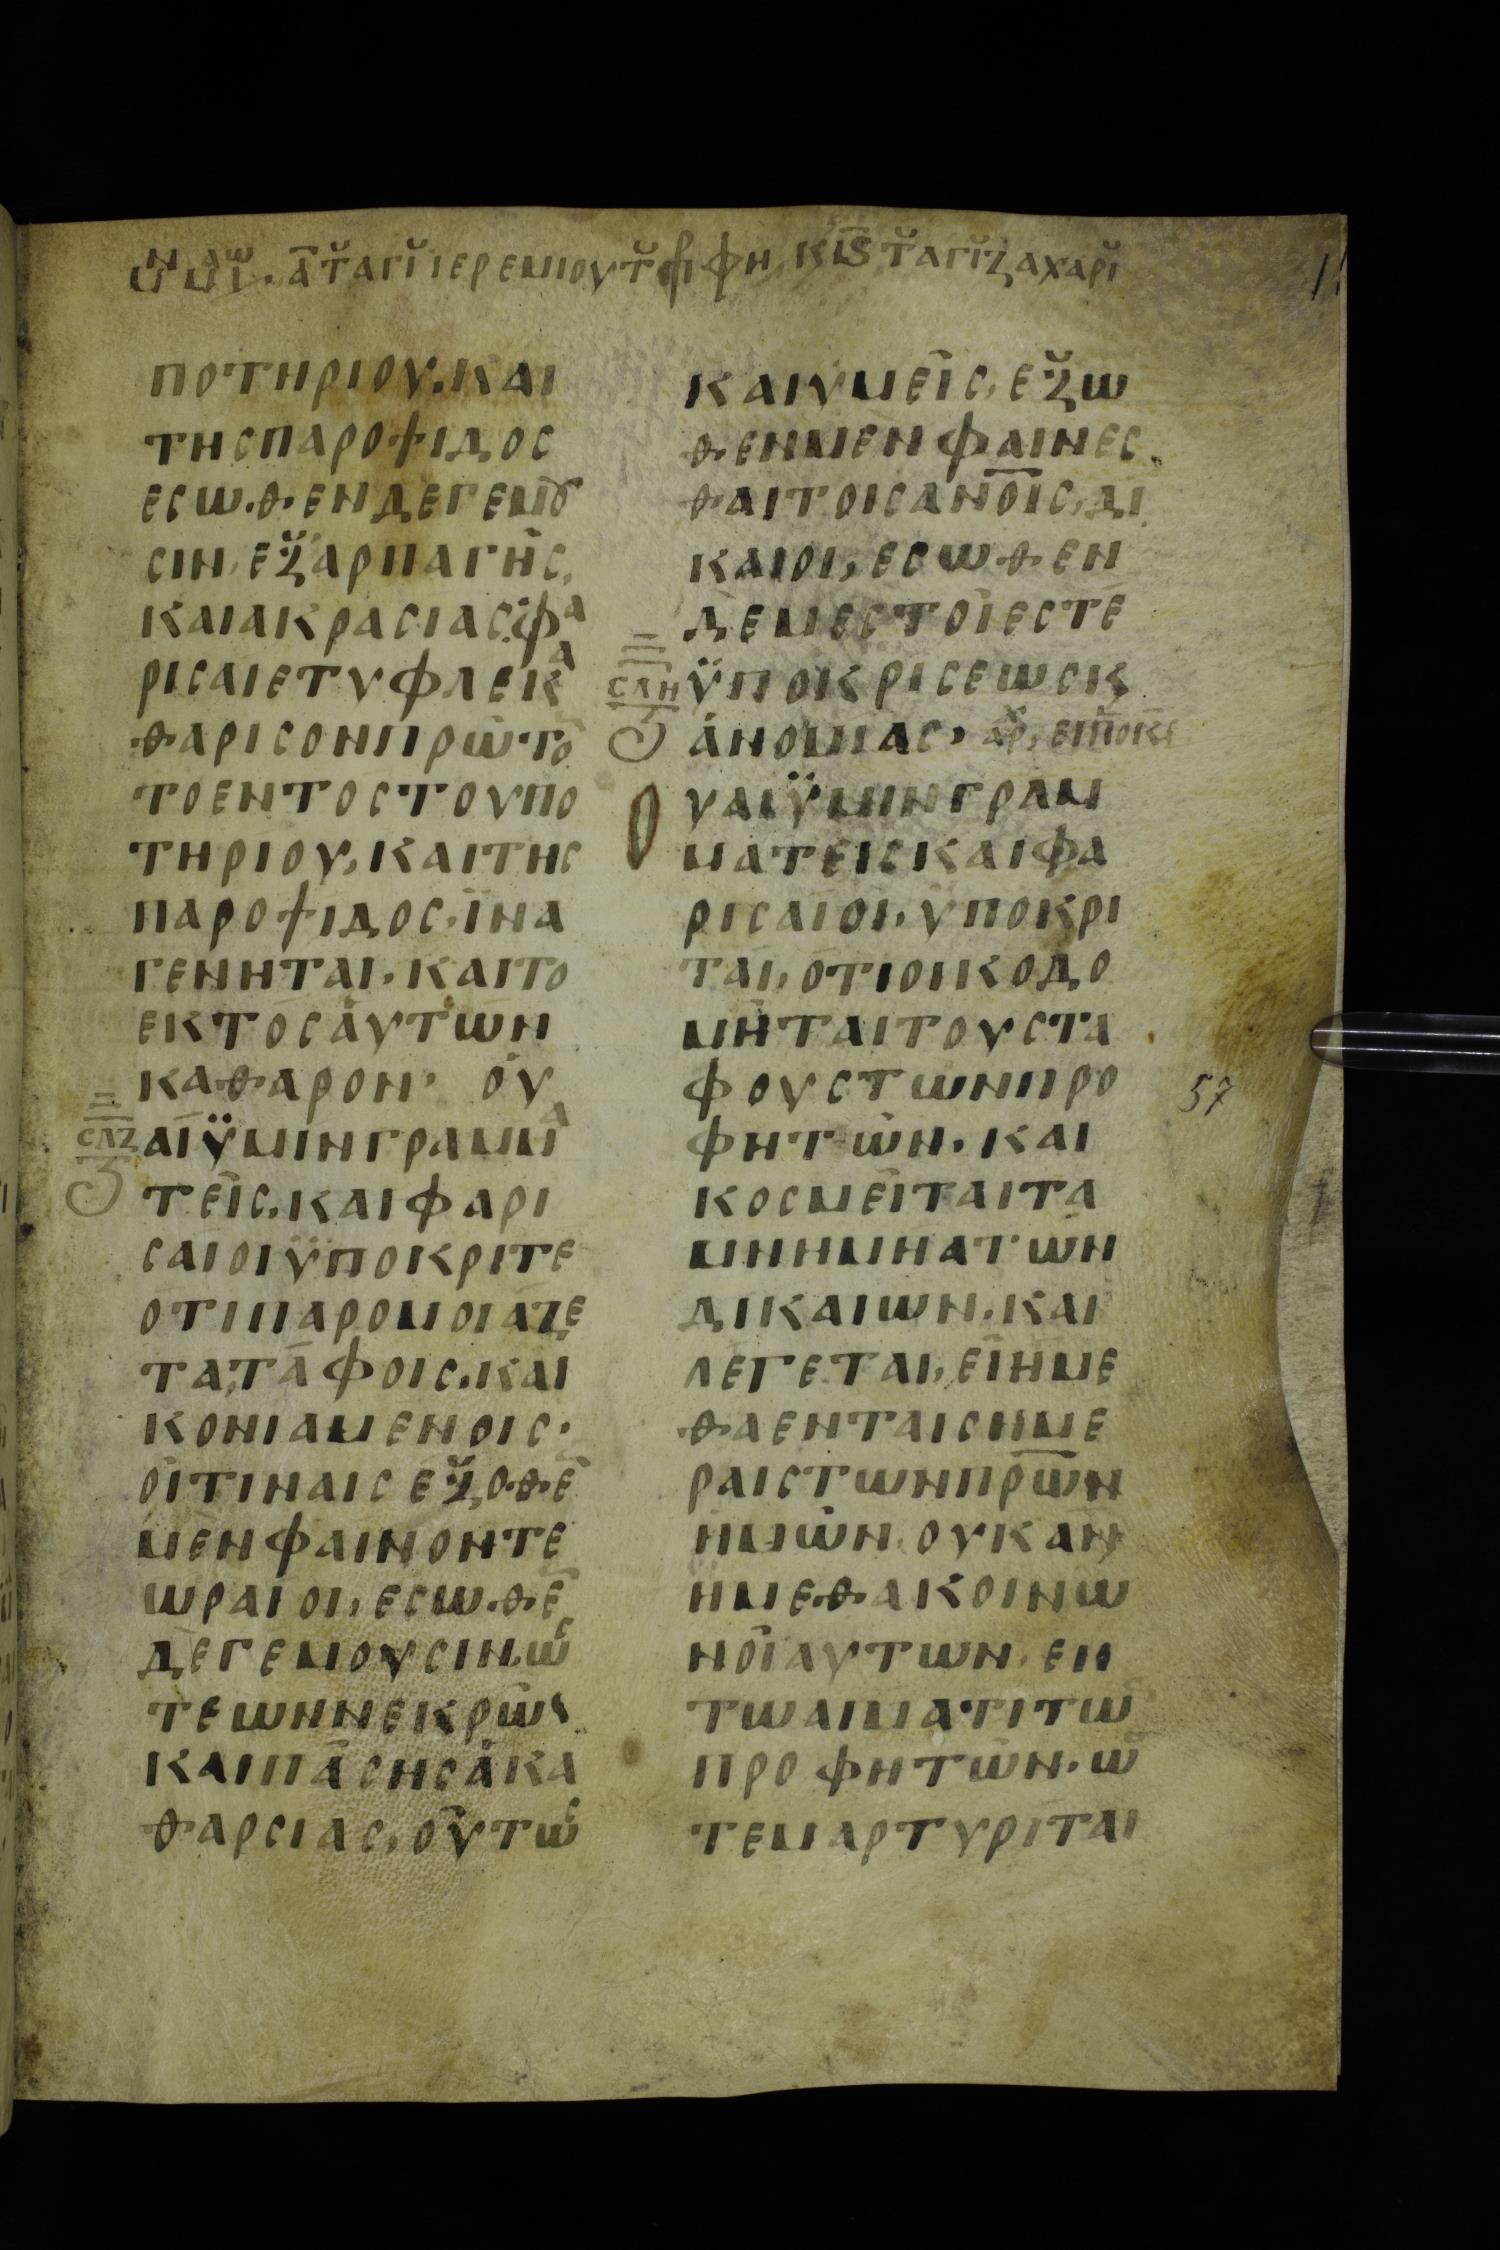 ποτηριου. και
τησπαροψιδοσ
εσωθενδεγεμȣ
σιν. εξαρπαγησ,
καιακρασιασ: φα
ρισαιετυφλεκα
θαρισονπρωτο
τοεντοστουπο
τηριου, καιτησ
παροψιδοσ. ϊνα
γενηται. καιτο
εκτοσαυτων
καθαρον. ου
σλζ αιϋμινγραμμα
τεισ. καιφαρι
σαιοιϋποκριτε
οτιπαρομοιαζε
τα, ταφοισ. και
κονιαμενοισ.
οιτιναισεξοθε̄
μενφαινοντε
ωραιοι, εσωθε̄
δεγεμουσιν. ωσ
τεωννεκρων
καιπασησακα
θαρσιασ, ουτωσ
καιυμεισ, εξω
θενμενφαινεσ
θαιτοισανοισ, δι
καιοι, εσωθεν
δεμεστοιεστε
σλη ϋποκρισεωσκ
ανομιασ.
ουαιϋμινγραμ
ματεισκαιφα
ρισαιοι. υποκρι
ται, οτιοικοδο
μηταιτουστα
φουστωνπρο
57
φητων. και
κοσμειταιτα
μνημηατων
δικαιων. και
λεγεται, ειημε
θαενταισημε
ραιστωνπρων
ημων. ουκαν
ημεθακοινω
νοιαυτων. εν
τωαιματιτω̄
προφητων. ω
τεμαρτυριται